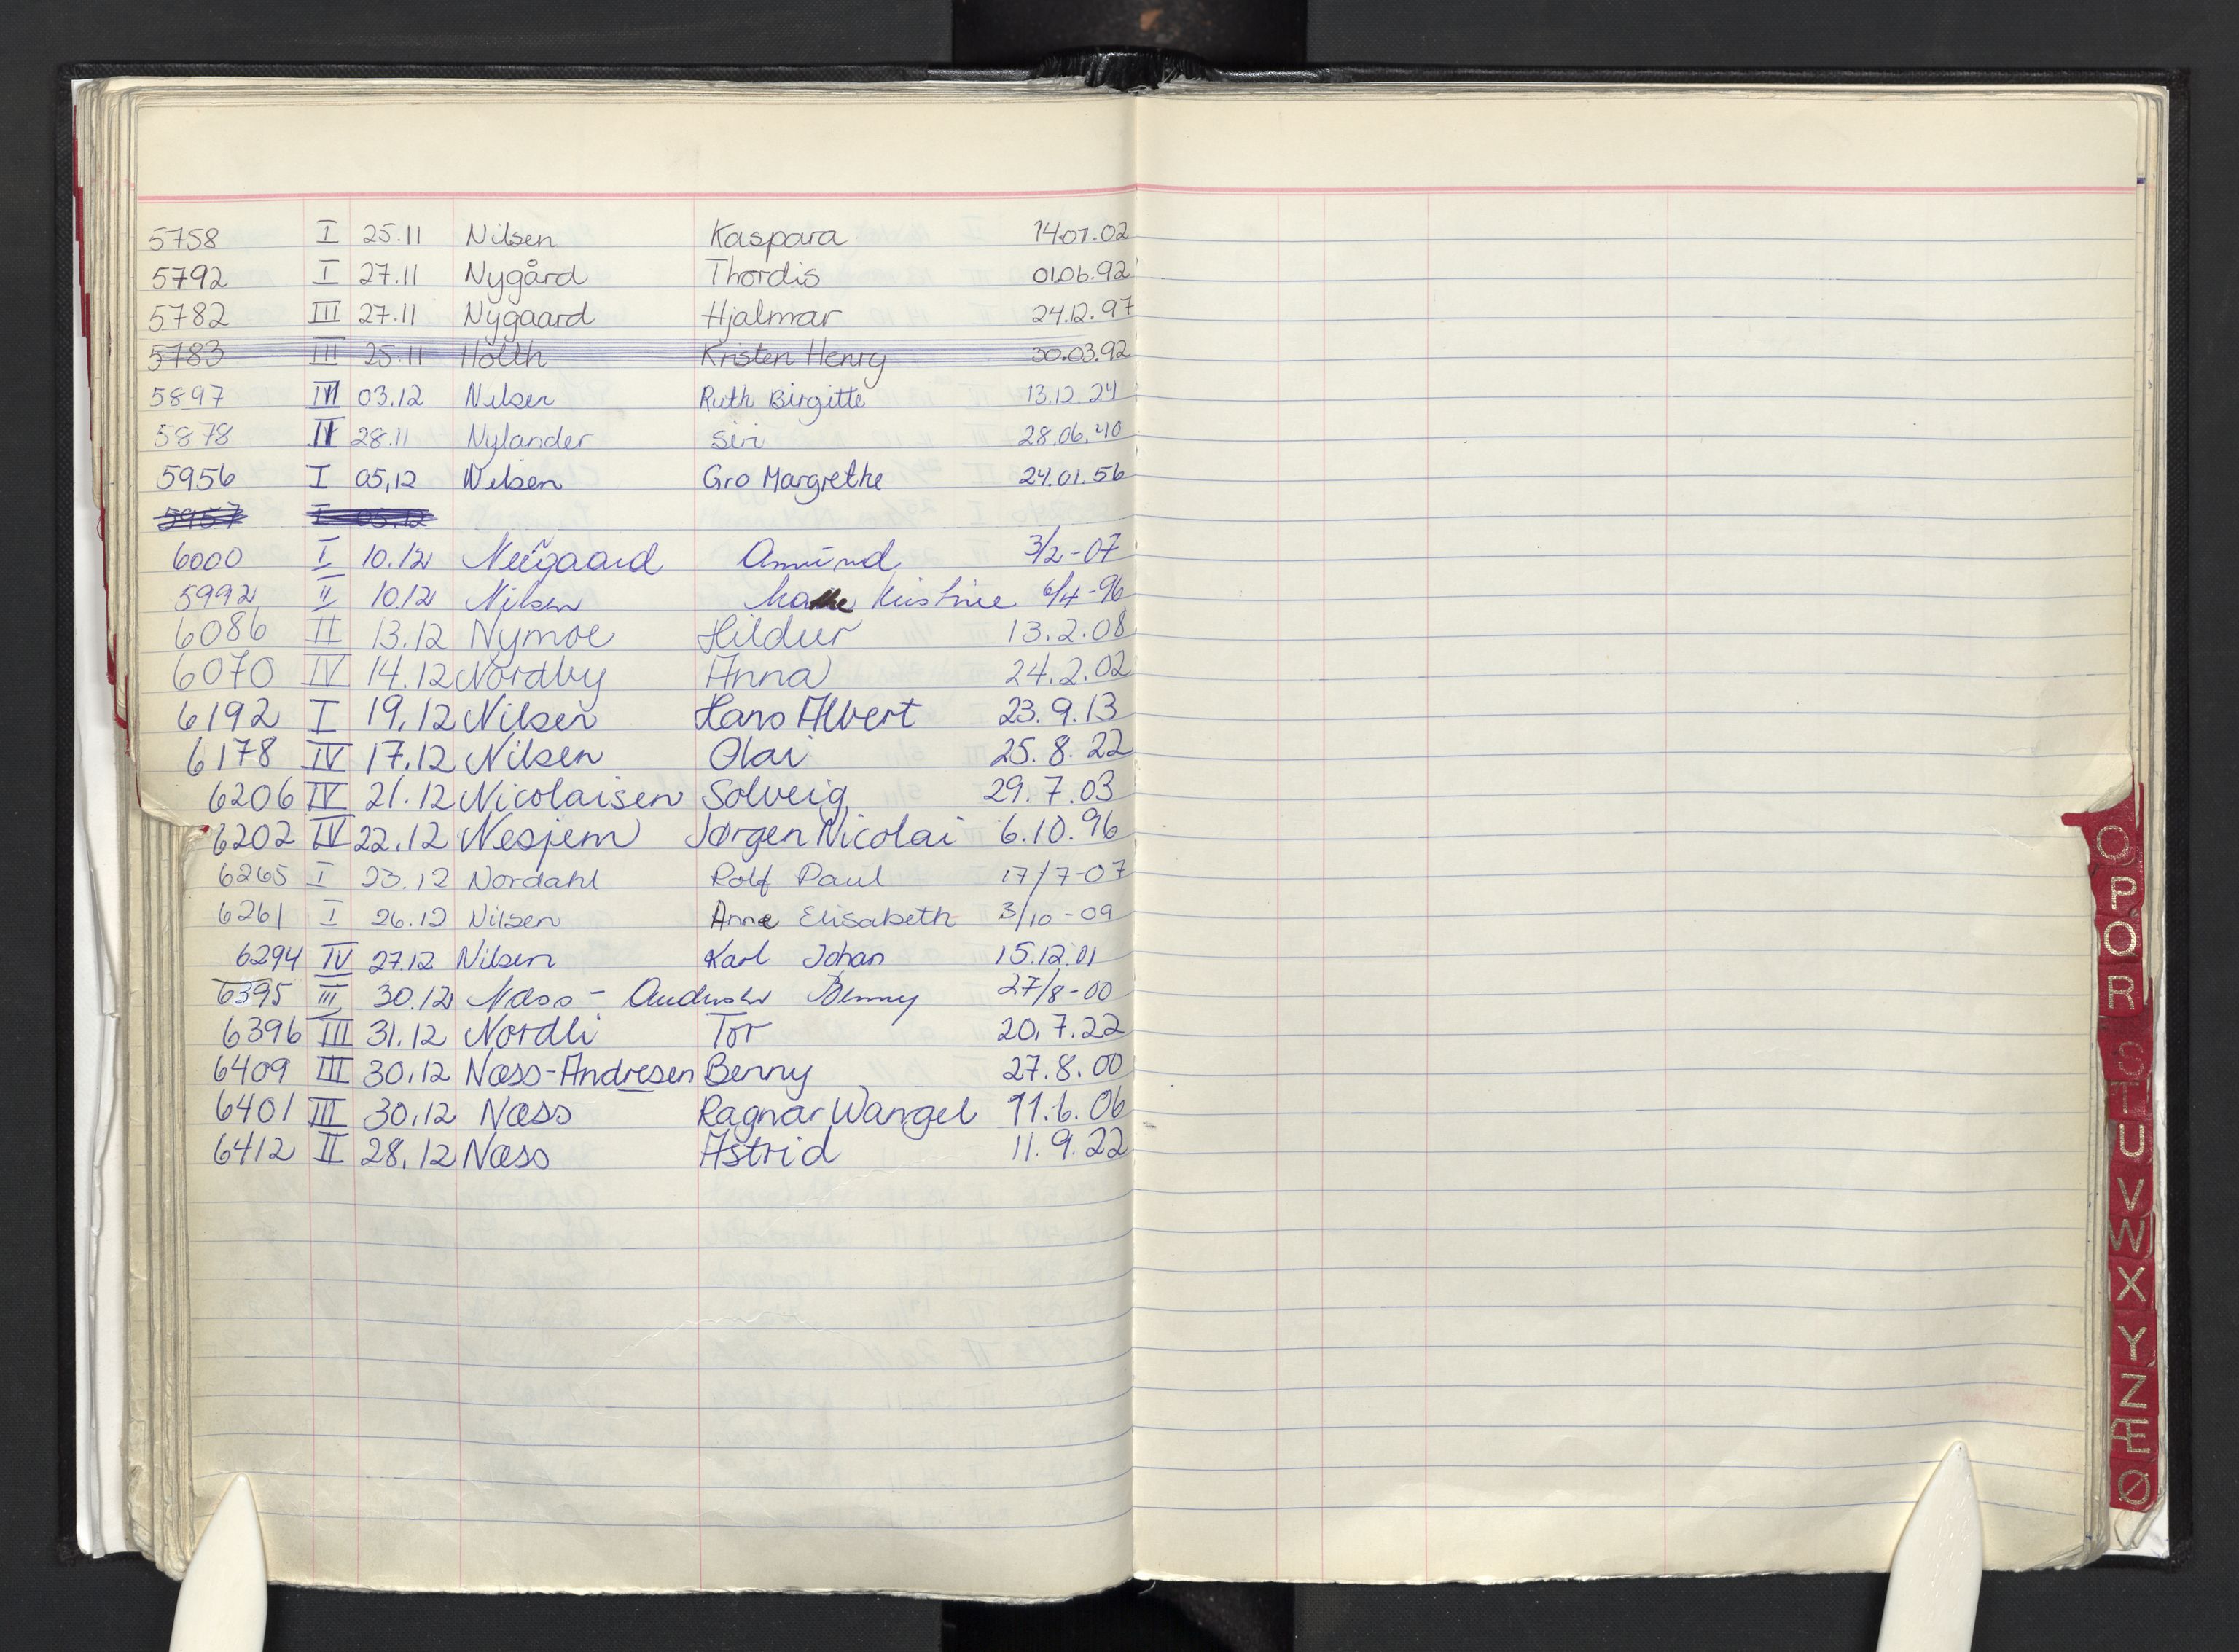 5758 I 25.11 Nilsen Kaspara 14.07.02
5792 I 27.11 Nygård Thordis 01.06.92
5782 III 27.11 Nygaard Hjalmar 24.12.97
5783 III 25.11 Holth Kristen Henry 30.03.92
5897 III 03.12 Nilsen Ruth Birgitte 13.12.24
5878 IV 28.11 Nylander Siri 28.06.40
5956 I 05.12 Nilsen Gro Margrethe 24.01.56
5957 I 05.12
6000 I 10.12 Neegaard Amund 3/2-07
5992 II 10.12 Nilsen Kristine 6/4-96
6086 II 13.12 Nymoe Hildur 13.2.08
6070 IV 14.12 Nordby Anna 24.2.02
6192 I 19.12 Nilsen Hans Albert 23.9.13
6178 IV 17.12 Nilsen Olai 25.8.22
6206 IV 21.12 Nicolaisen Solveig 29.7.03
6202 IV 22.12 Nesjem Jørgen Nicolai 6.10.96
6265 I 23.12 Nordahl Rolf Paul 17/7-07
6261 I 26.12 Nilsen Anne Elisabeth 3/10-09
6294 IV 27.12 Nilsen Karl Johan 15.12.01
6395 III 30.12 Næss-Andresen Benny 27/8-00
6396 III 31.12 Nordli Tor 20.7.22
6409 III 30.12 Næss-Andresen Benny 27.8.00
6401 III 30.12 Næss Ragnar Wangel 11.6.06
6412 II 28.12 Næss Astrid 11.9.22
O
P
Q
R
S
T
U
V
W
X
Y
Z
Æ
Ø